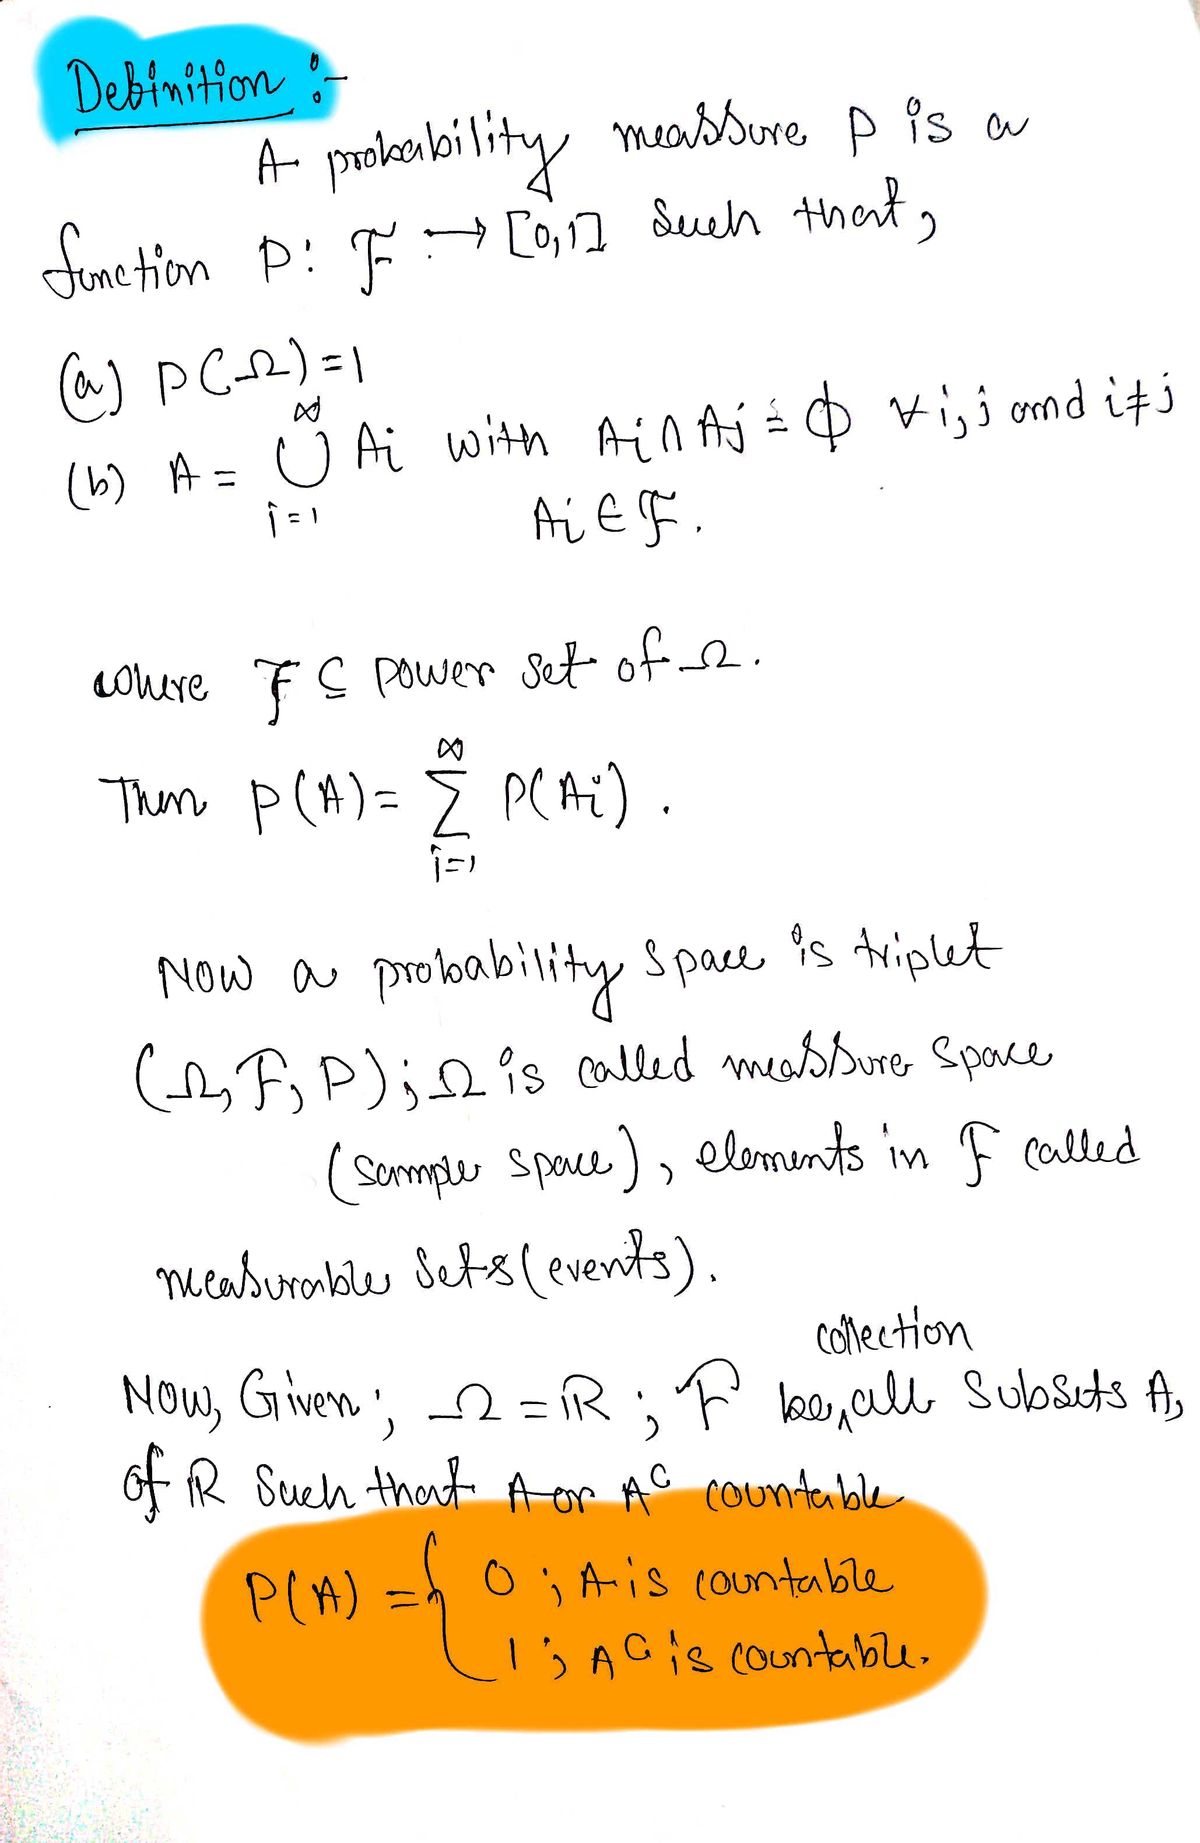 Definition :-
A probability meassure P is a
function P: F → [0,1] such that,
(a) P(Ω)=1
(b) A = ∞ ⋃ i=1 Ai with Ai ∩ Aj = ϕ ∀ i,j and i≠j
Ai ∈ F.
where F ⊆ power set of Ω.
Then P(A) = ∞ ∑ i=1 P(Ai).
Now a probability space is triplet
(Ω, F, P); Ω is called meassure space
(sample space), elements in F called
measurable sets (events).
collection
Now, Given; Ω = ℝ; F be,^ all subsets A,
of ℝ such that A or Aᶜ countable
P(A) = { 0 ; A is countable
1 ; Aᶜ is countable.